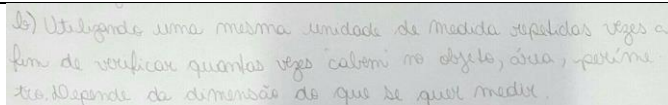 b) Utilizando uma mesma unidade de medida repetidas vezes a
fim de verificar quantas vezes "cabem" no objeto, área, períme
tro. Depende da dimensão do que se quer medir.